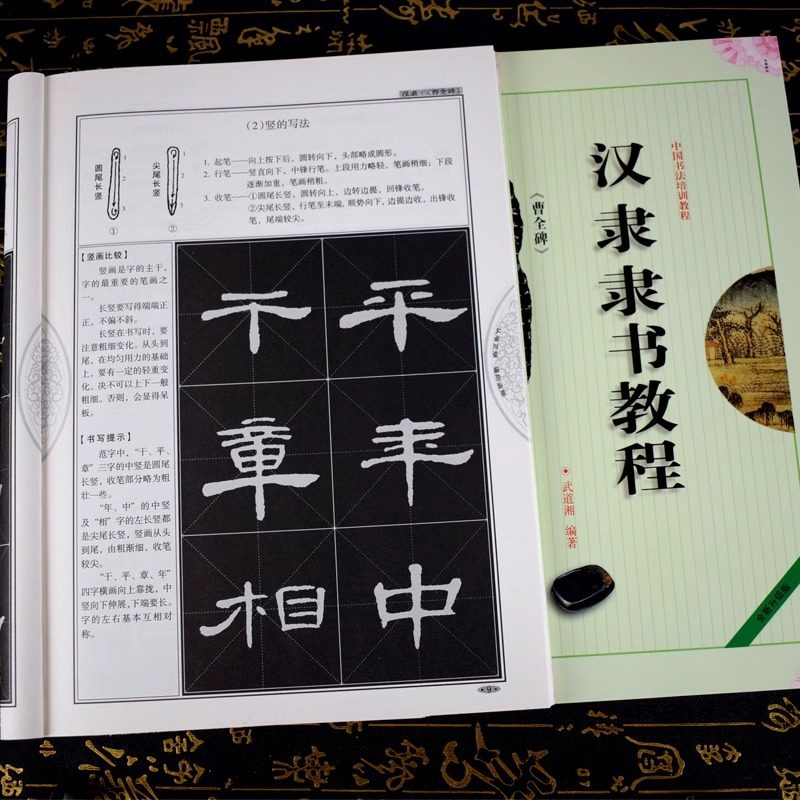 汉隶·《曹全碑》
(2)竖的写法
圆尾长竖
1
2
3
①
尖尾长竖
1
2
3
②
1. 起笔——向上按下后，圆转向下，头部略成圆形。
2. 行笔——竖直向下，中锋行笔。上段用力略轻，笔画稍细；下段
逐渐加重，笔画稍粗。
3. 收笔——①圆尾长竖，圆转向上，边转边提，回锋收笔。
②尖尾长竖，行笔至末端，顺势向下，边提边收，出锋收
笔，尾端较尖。
【竖画比较】
竖画是字的主干，
字的最重要的笔画之
一。
长竖要写得端端正
正，不偏不斜。
长竖在书写时，要
注意粗细变化。从头到
尾，在均匀用力的基础
上，要有一定的轻重变
化，决不可以上下一般
粗细。否则，会显得呆
板。
【书写提示】
范字中，“干、平、
章”三字的中竖是圆尾
长竖，收笔部分略为粗
壮一些。
“年、中”的中竖
及“相”字的左长竖都
是尖尾长竖，竖画从头
到尾，由粗渐细，收笔
较尖。
“干、平、章、年”
四字横画向上靠拢，中
竖向下伸展，下端要长。
字的左右基本互相对
称。
干 平
章 年
相 中
9
中国书法培训教程
汉隶隶书教程
《曹全碑》
武道湘 编著
全新升级版